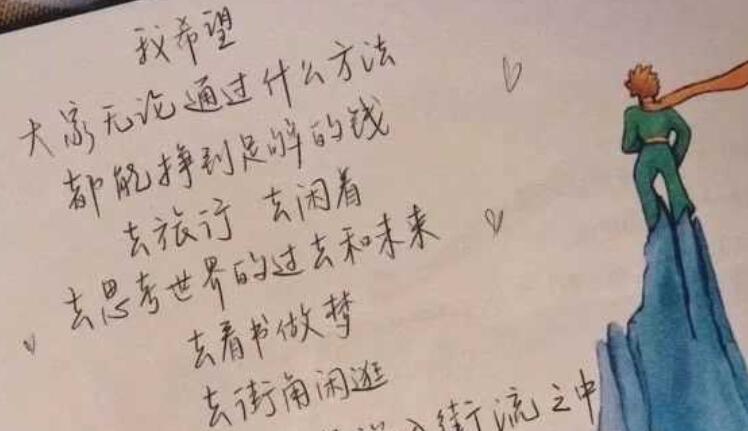 我希望
大家无论通过什么方法
都能挣到足够的钱
去旅行 去闲着
去思考世界的过去和未来
去看书做梦
去街角闲逛
入街流之中